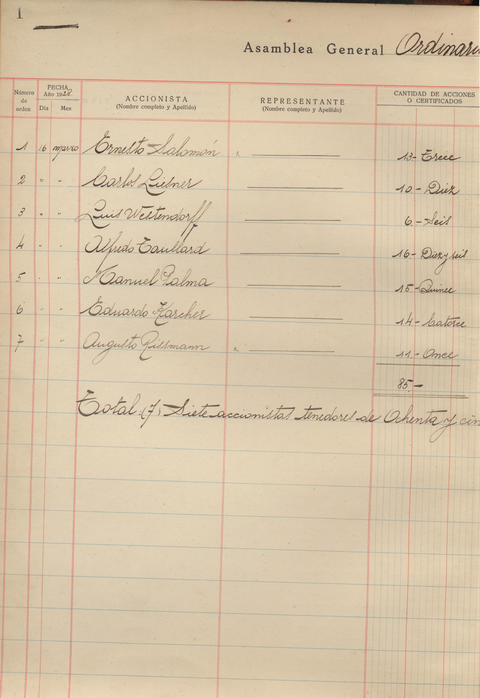 1
Asamblea General Ordinaria
Número de orden
FECHA
Año 1928
Día Mes
ACCIONISTA
(Nombre completo y Apellido)
REPRESENTANTE
(Nombre completo y Apellido)
CANTIDAD DE ACCIONES
O CERTIFICADOS
1 16 marzo Ernesto Salomón " 13- Trece
2 " " Carlos Liesner 10- Diez
3 " " Luis Westendorff 6- Seis
4 " " Alfredo Taullard 16- Diez y seis
5 " " Manuel Palma 15- Quince
6 " " Eduardo Karcher 14- Catorce
7 " " Augusto Rissmann " 11- Once
85.-
Total (7) Siete accionistas tenedores de Ochenta y cin